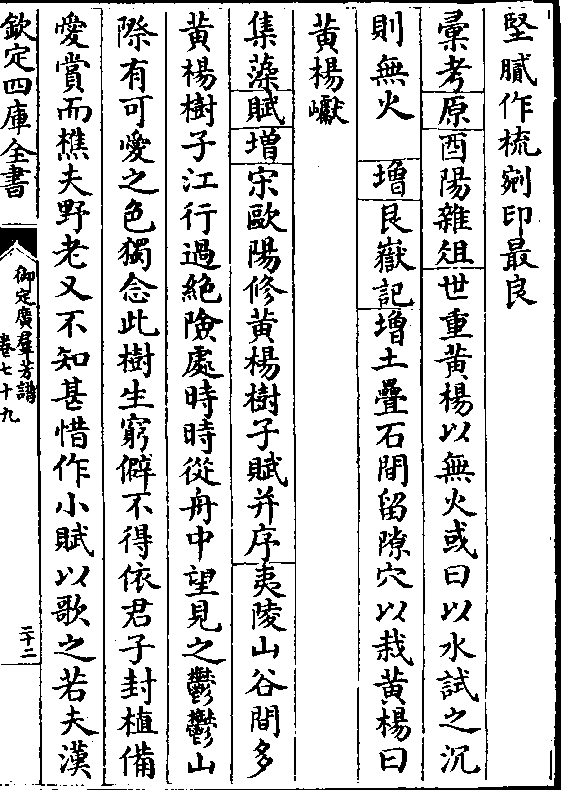 堅膩作梳剜印最良
彚考原酉陽雜俎世重黄楊以無火或曰以水試之沉
則無火　增艮嶽記增土疊石間留隙穴以栽黄楊曰
黄楊巘
集藻賦增宋歐陽修黄楊樹子賦并序夷陵山谷間多
黄楊樹子江行過絶險處時時從舟中望見之鬱鬱山
際有可愛之色獨念此樹生窮僻不得依君子封植備
愛賞而樵夫野老又不知甚惜作小賦以歌之若夫漢
欽定四庫全書
御定廣羣芳譜
卷七十九
二十二